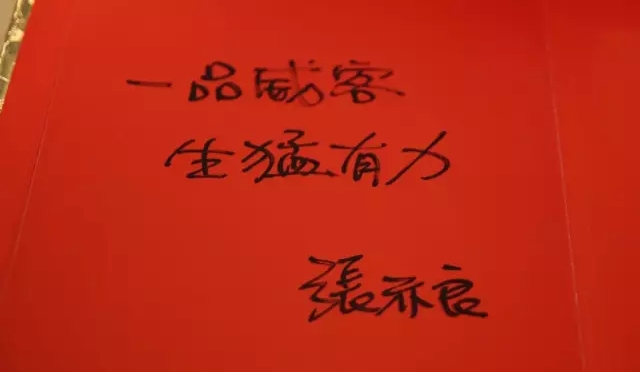 一品威客
生猛有力
張亦良